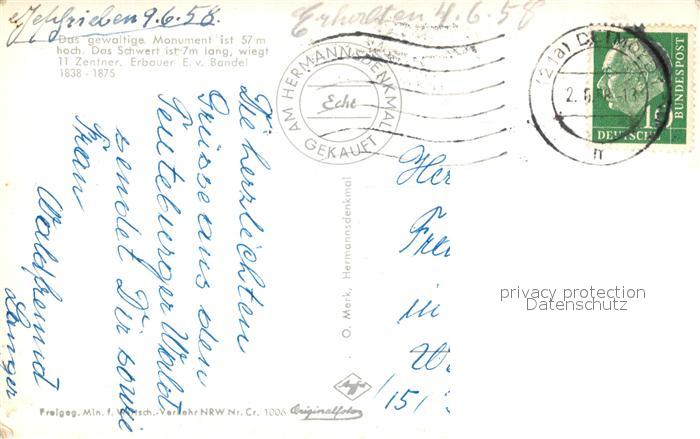 Geschrieben 9.6.58.
Erhalten 4.6.58
Das gewaltige Monument ist 57 m
hoch. Das Schwert ist 7m lang, wiegt
11 Zentner. Erbauer E. v. Bandel
1838 - 1875
AM HERMANNSDENKMAL
Echt
GEKAUFT
(21a) DETMOLD
2.
DEUTSCHE
BUNDESPOST
Die herzlichten
Grüsse aus den
Teuteburger Wald
sendet Dir sowie
Frau
Waldfreund
Langer
O. Merk, Hermannsdenkmal
Her
Frei
in
(15
privacy protection
Datenschutz
Agfa
Freigeg. Min. f. Wirtsch.-Verkehr NRW Nr. Cr. 1006 Originalfoto